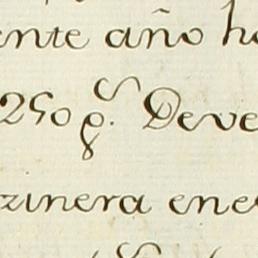 ente año h
250 p.s Deve
zinera ene